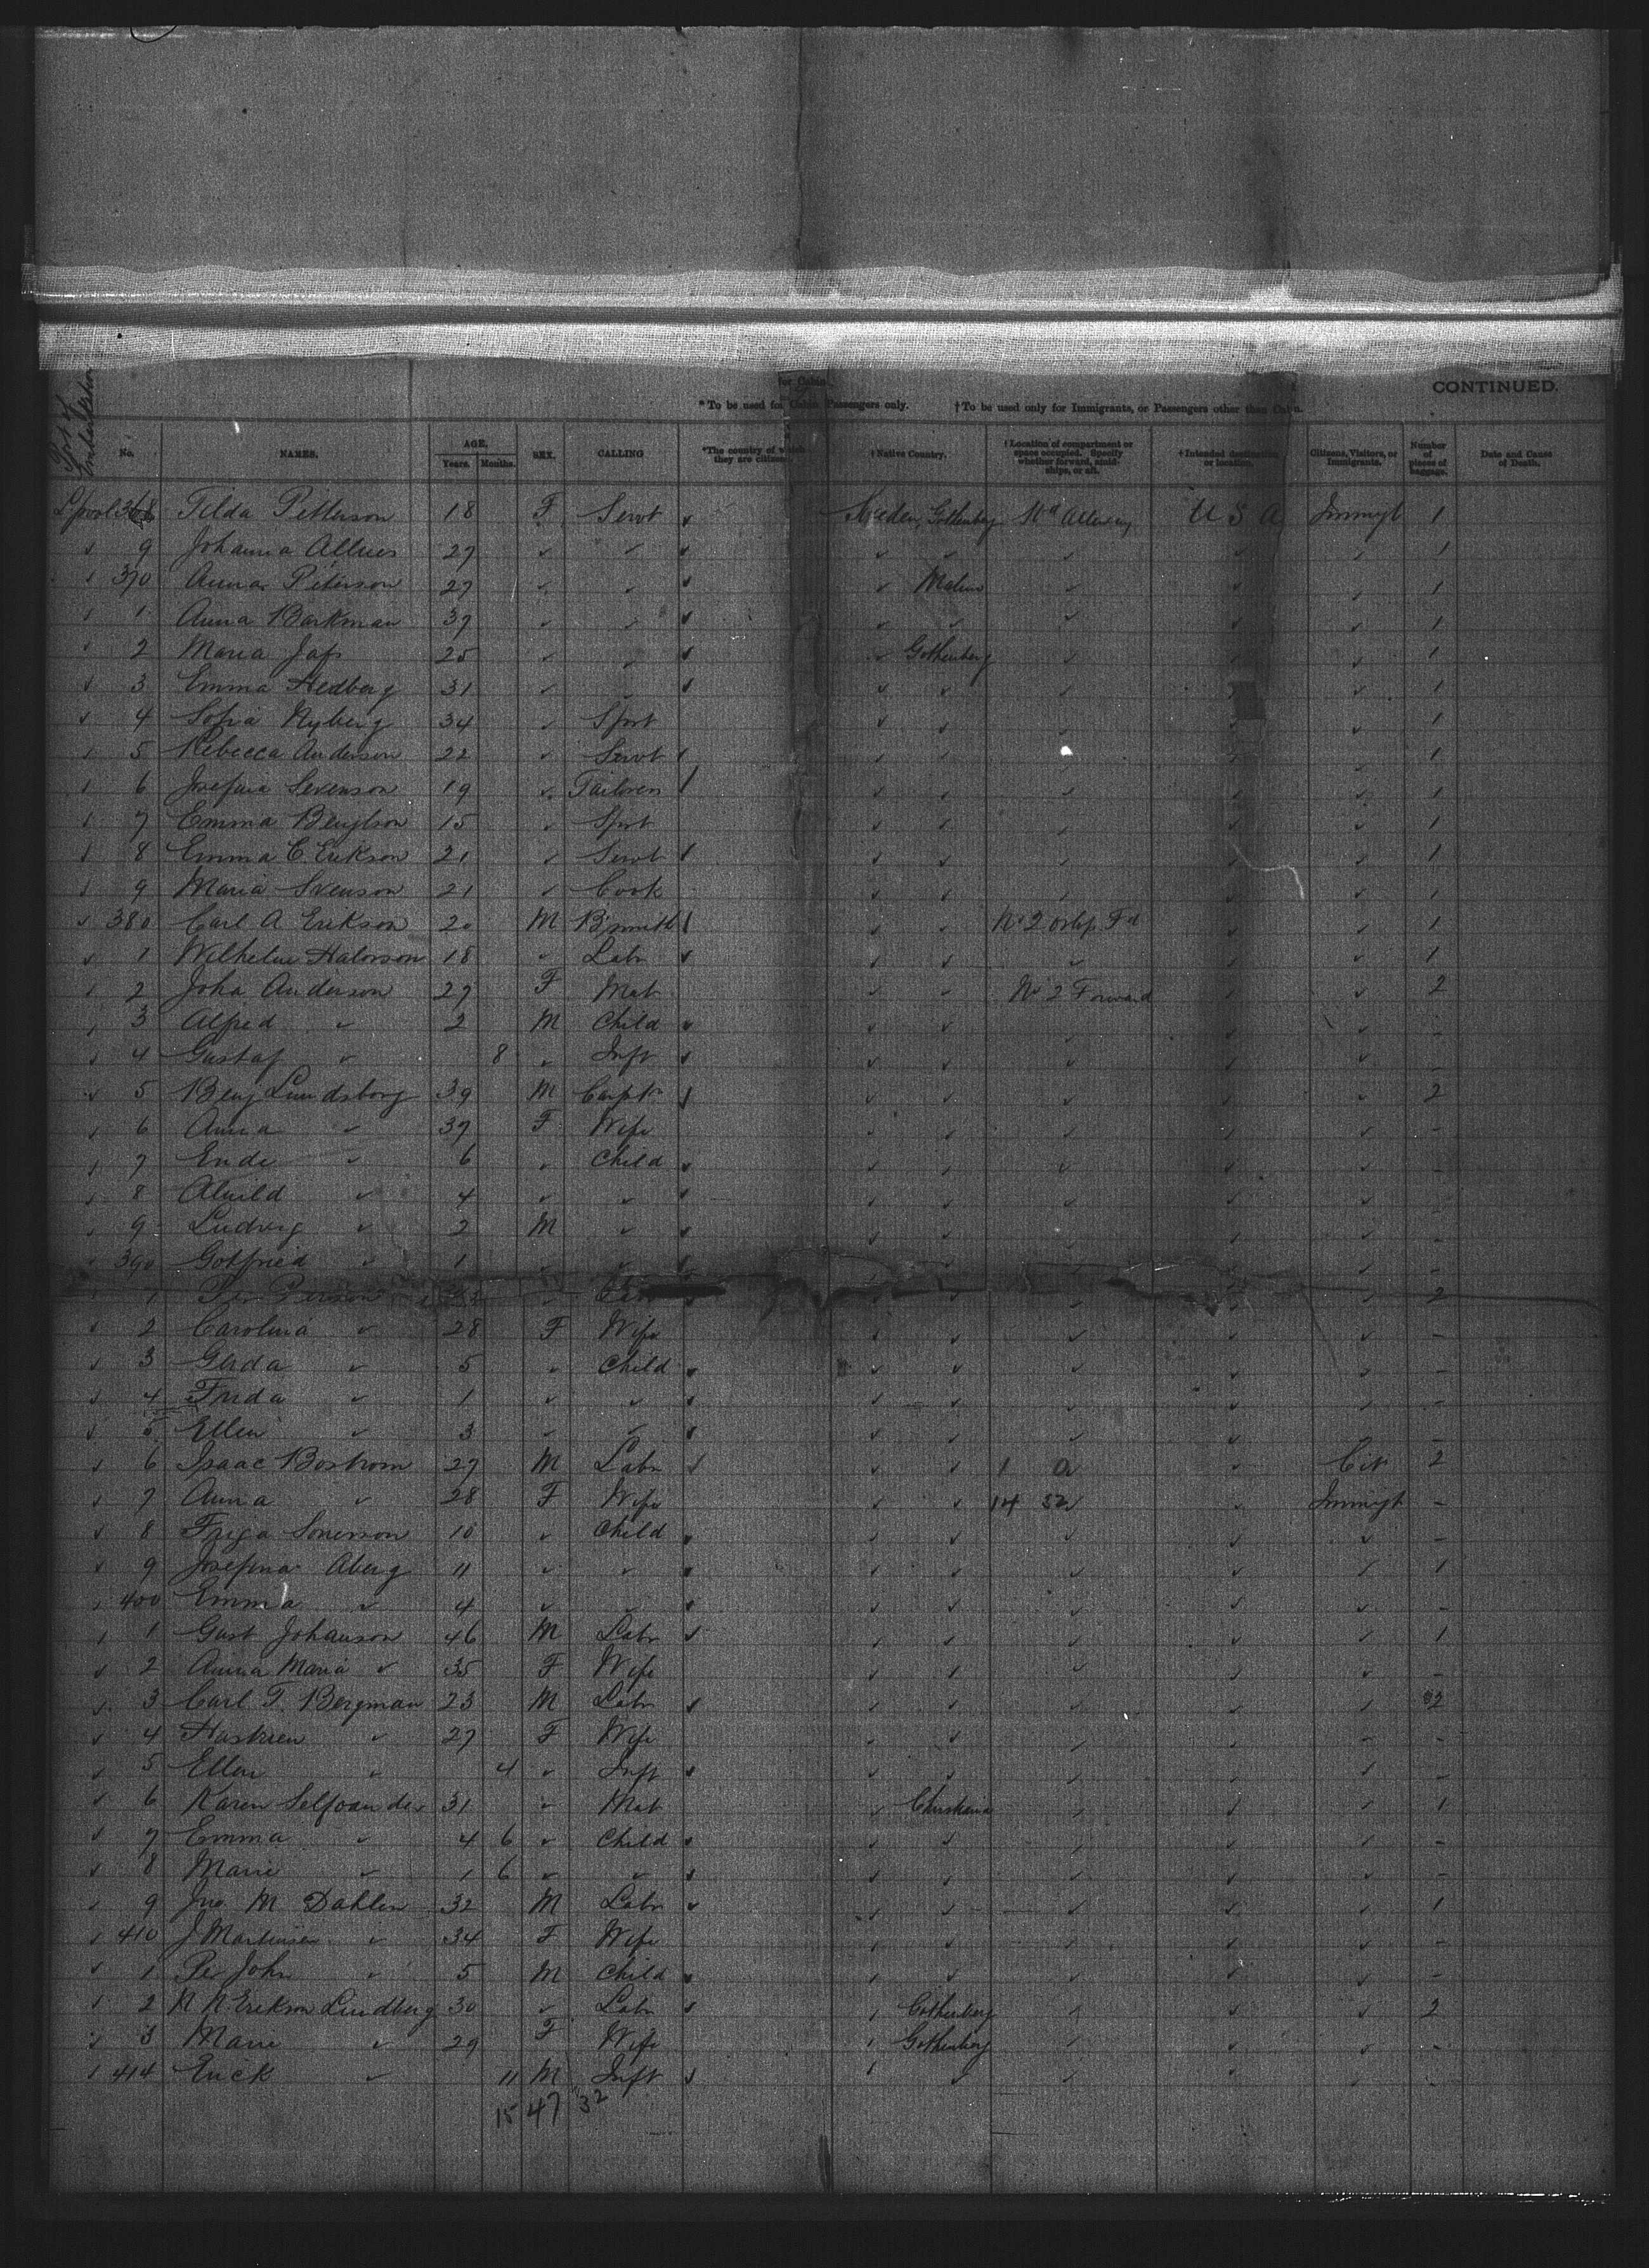 for Cabin
CONTINUED.
* To be used for Cabin Passengers only. † To be used only for Immigrants, or Passengers other than Cabin.
Port of Embarkation No. NAMES. AGE. Years. Months. SEX. CALLING *The country of which they are citizens. †Native Country. †Location of compartment or space occupied. Specify whether forward, amidships, or aft. †Intended destination or location. Citizens, Visitors, or Immigrants. Number of pieces of baggage. Date and Cause of Death.
L'pool 368 Tilda Petterson 18 F Servt Sweden, Gothenbg U S A Immigt 1
9 Johanna 27 1
370 Anna Peterson 27 Malmo 1
1 Anna Barkman 37 1
2 Maria 25 Gothenberg 1
3 Emma Hedberg 31 1
4 Sofia Nyberg 34 Spst 1
5 Rebecca Anderson 22 Servt 1
6 Josefina Svenson 19 Tailoress 1
7 Emma Bengtson 15 Spst 1
8 Emma C. Erikson 21 Servt 1
9 Maria Svenson 21 Cook 1
380 Carl A Erikson 20 M B'smith No 2 orlop Fd 1
1 Wilhelm Halvorson 18 Labr 1
2 Joha Anderson 27 F Mat No 2 Forward 2
3 Alfred " 2 M Child -
4 Gustaf " 8 Inft -
5 Benj Lundsborg 39 M Carptr 2
6 Anna " 37 F Wife -
7 Ende " 6 Child -
8 " 4 -
9 Ludvig " 2 M -
390 Gotfried " 1 -
1 Per Person 2
2 Carolina " 28 F Wife -
3 Gerda " 5 Child -
4 Frida " 1 -
5 Ellen " 3 -
6 Isaac Bostrom 27 M Labr 1 a Cit 2
7 Anna " 28 F Wife 14 32 Immigt -
8 Friga 10 Child -
9 Josefina Aberg 11 1
400 Emma " 4 -
1 Gust Johanson 46 M Labr 1
2 Anna Maria " 35 F Wife -
3 Carl T. Bergman 23 M Labr 2
4 " 27 F Wife -
5 Ellen " 4 Inft -
6 Karen 31 Mat Christiania 1
7 Emma " 4 6 Child -
8 Marie " 1 6 -
9 Jno M Dahlen 32 M Labr 1
410 J Martinsen " 34 F Wife -
1 Per John " 5 M Child -
2 N N Erikson Lundberg 30 Labr Gothenberg 2
3 Marie " 29 F Wife Gothenberg -
414 Erick " 11 M Inft -
15 47 32